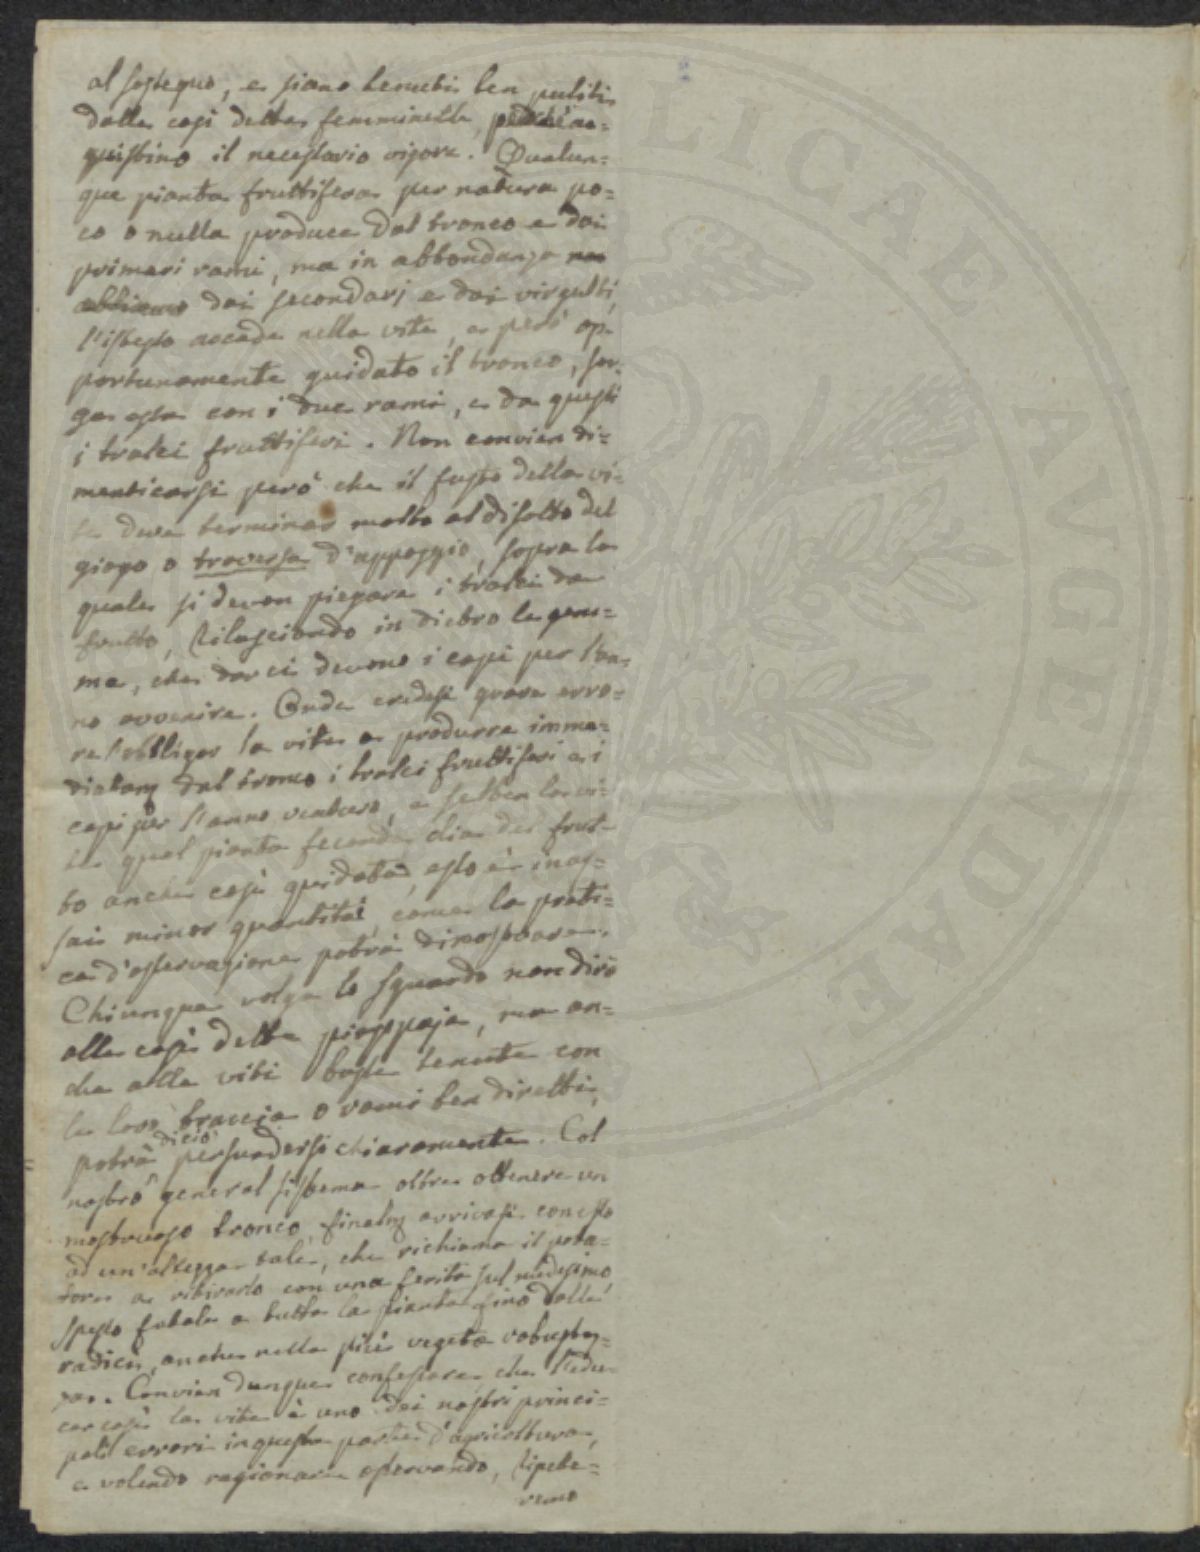 al sostegno, e siano tenuti ben puliti
dalle così dette femminelle, perchè ac=
quistino il necessario vigore. Qualun=
que pianta fruttifera per natura po=
co o nulla produce dal tronco e dai
primari rami, ma in abbondanza ne
abbiamo dai secondarj e dai virgulti,
l'istesso accade nella vite, e però op=
portunamente guidato il tronco, sor=
ga essa con i due rami, e da questi
i tralci fruttiferi. Non convien di=
menticarsi però che il fusto della vi=
te deve terminar molto al disotto del
giogo o traversa d'appoggio, sopra la
quale si devon piegare i tralci da
frutto, rilasciando in dietro le gem=
me, che dar ci devono i capi per l'an=
no avvenire. Onde credesi grave erro=
re l'obbligar la vite a produrre imme=
diatam dal tronco i tralci fruttiferi e i
capi per l'anno venturo, e sebben la vi=
te qual pianta feconda dia del frut=
to anche così guidata, esso è in as=
sai minor quantità, come la prati=
ca d'osservazione potrà dimostrare.
Chiunque volga lo sguardo non dirò
alle così dette pioppaje, ma an=
che alle viti basse tenute con
le loro braccia o rami ben diretti,
potrà di ciò persuadersi chiaramente. Col
nostro general sistema oltre ottenere un
mostruoso tronco, finalm arrivasi con esso
ad un'altezza tale, che richiama il pota=
tore a ritirarlo con una ferita sul medesimo
spesso fatale a tutta la pianta fino dalle
radici, anche nella più vegeta robustez=
za. Convien dunque confessare che l'edu=
car così la vite è uno dei nostri princi=
pali errori in questa parte d'agricoltura,
e volendo ragionare osservando, ripete=
remo
LICAE AVGENDAE